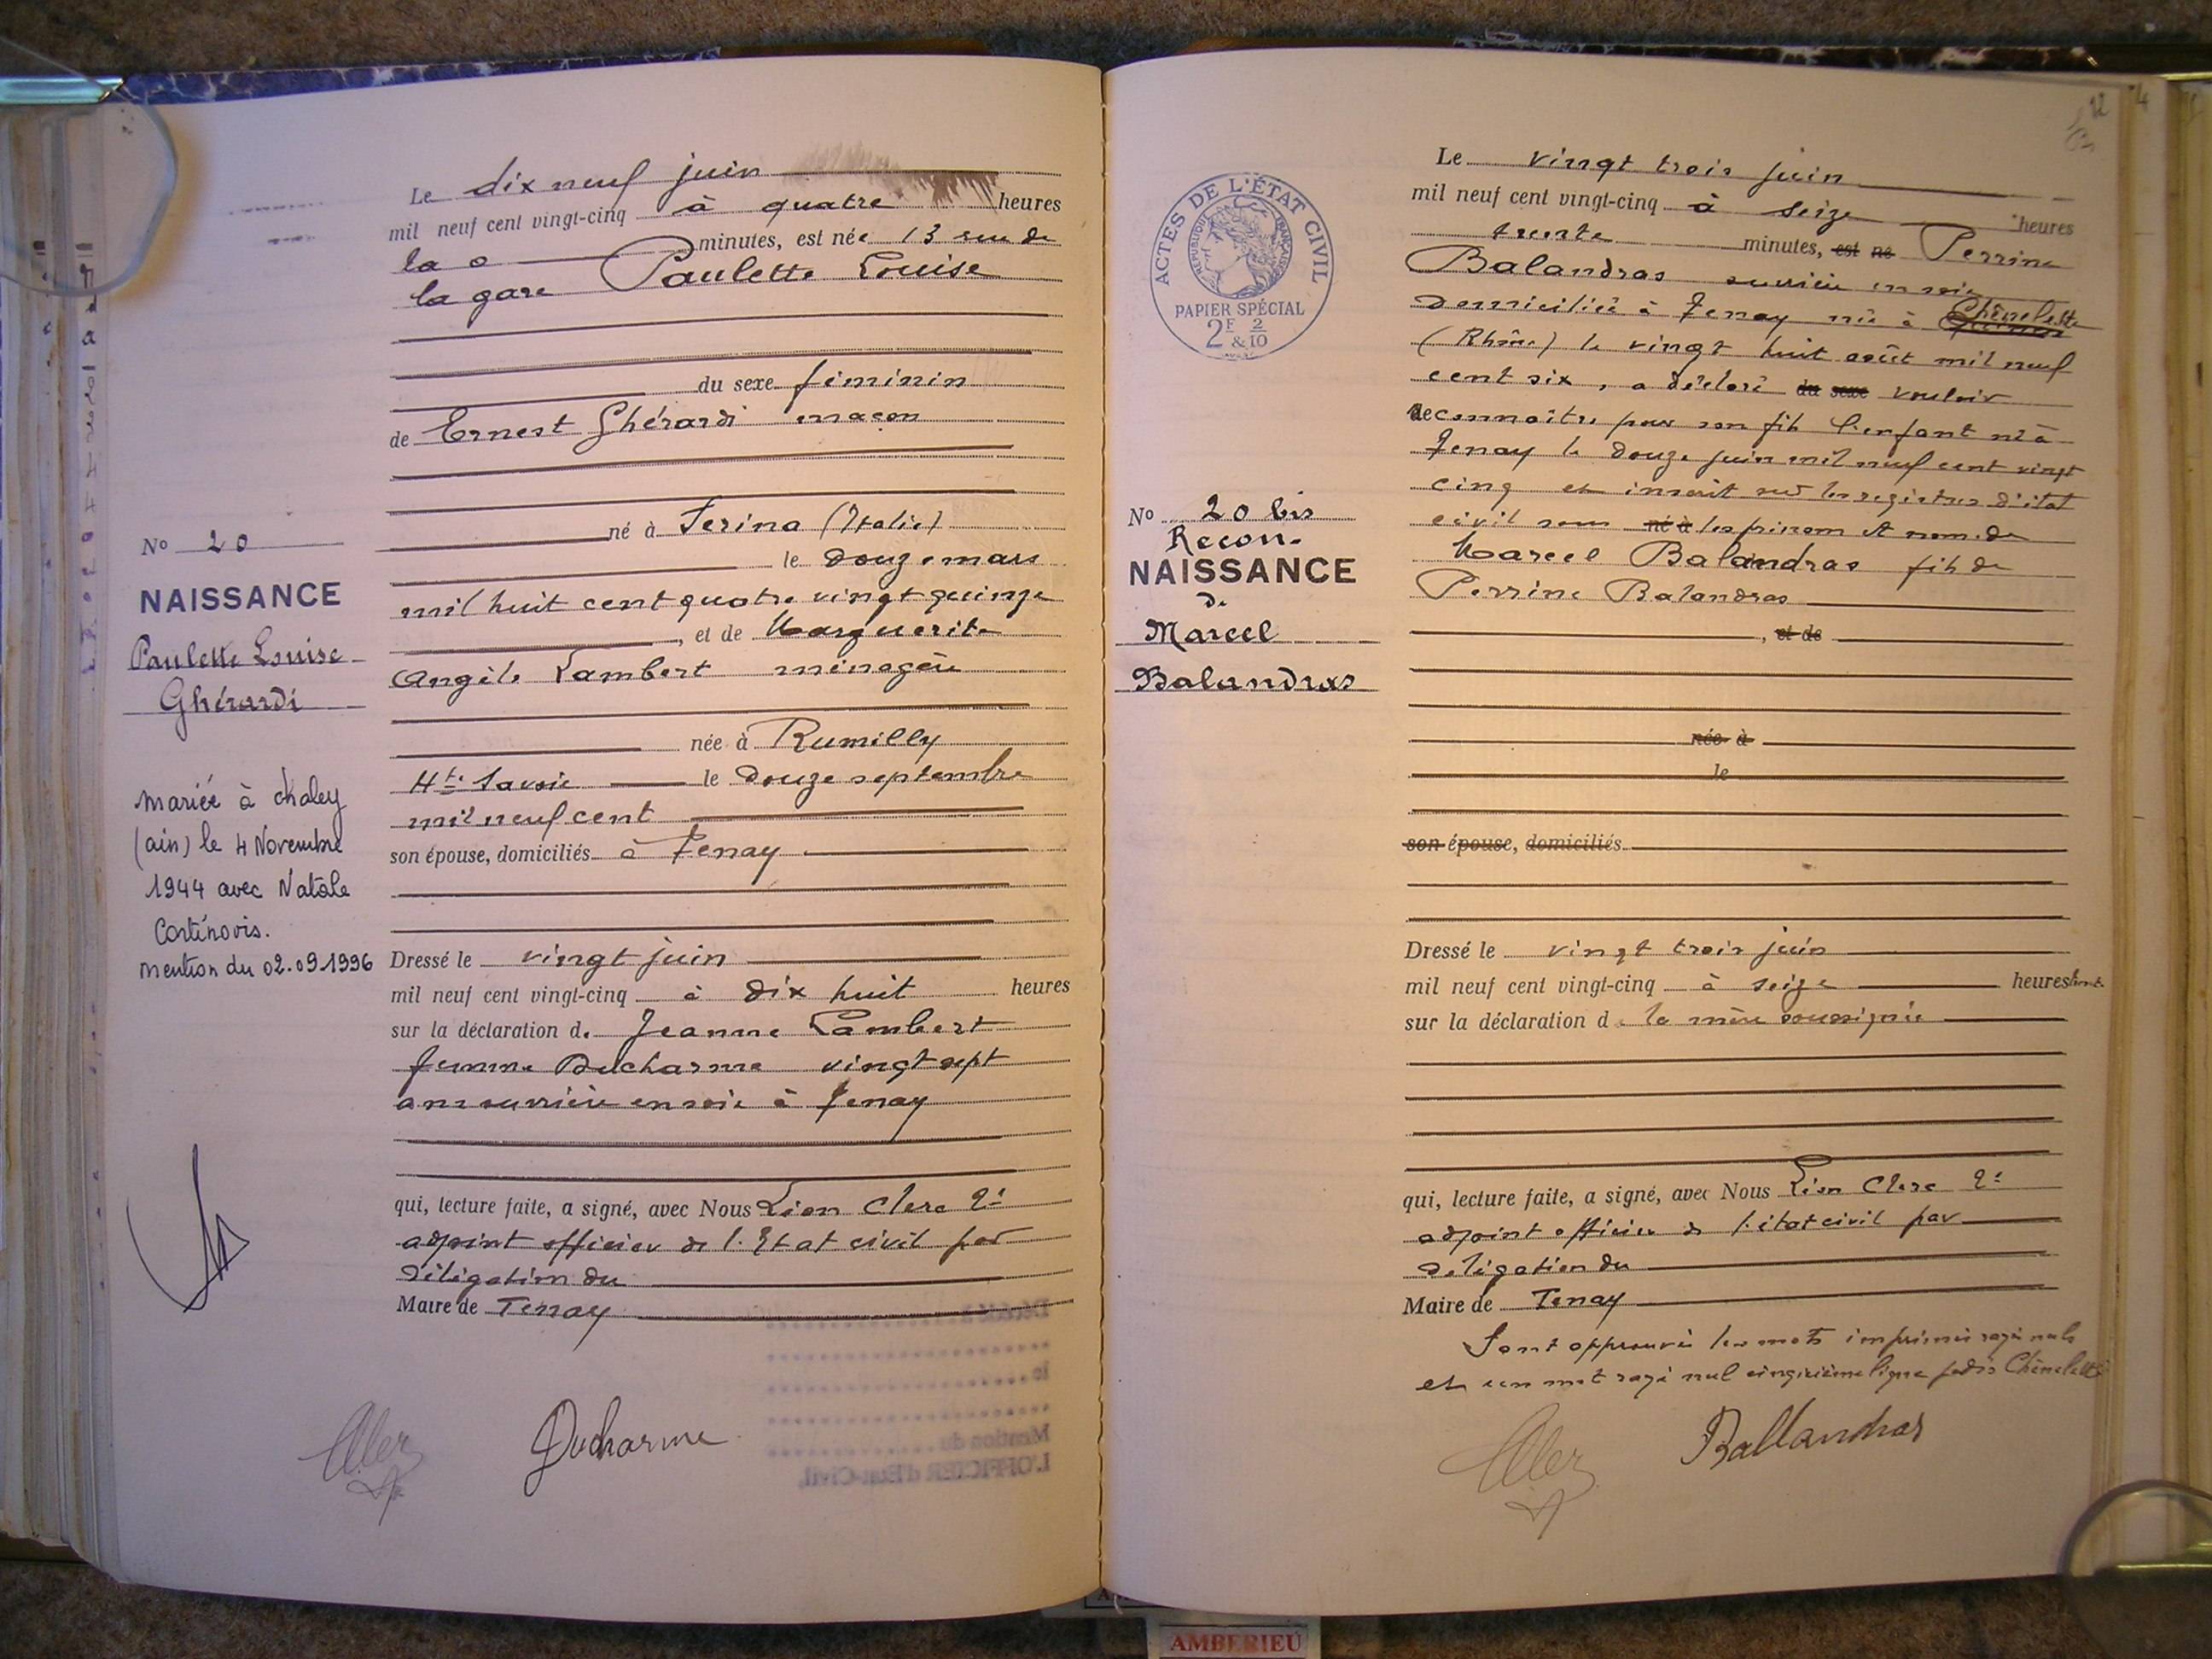 Le dix neuf juin
mil neuf cent vingt-cinq à quatre heures
minutes, est née 13 rue de
la gare Paulette Louise
du sexe féminin
de Ernest Ghérardi maçon
né à Ferina (Italie)
le douze mars
mil huit cent quatre vingt quinze
, et de Marguerite
Angèle Lambert ménagère
née à Rumilly
Hte Savoie le douze septembre
mil neuf cent
son épouse, domiciliés à Tenay
Dressé le vingt juin
mil neuf cent vingt-cinq à dix huit heures
sur la déclaration de Jeanne Lambert
femme Ducharme vingt sept
ans ouvrière en soie à Tenay
qui, lecture faite, a signé, avec Nous Léon Clerc 2e
adjoint officier de l'Etat civil par
délégation du
Maire de Tenay
Ducharme
No 20
NAISSANCE
Paulette Louise
Ghérardi
Mariée à Chaley
(ain) le 4 Novembre
1944 avec Natale
Cortinovis.
Mention du 02.09.1996
Décédé à
le
Mention du
L'OFFICIER d'Etat-Civil,
12
4
ACTES DE L'ÉTAT CIVIL
RÉPUBLIQUE FRANÇAISE
PAPIER SPÉCIAL
2F & 2/10
No 20 bis
Recon-
NAISSANCE
de
Marcel
Balandras
Le vingt trois juin
mil neuf cent vingt-cinq à seize heures
trente minutes, est né Perrine
Balandras ouvrière en soie
domiciliée à Tenay née à Chênelette
(Rhône) le vingt huit août mil neuf
cent six, a déclaré du sexe vouloir
reconnaître pour son fils l'enfant né à
Tenay le douze juin mil neuf cent vingt
cinq et inscrit sur les registres d'état
civil sous né à les prénom et nom de
Marcel Balandras fils de
Perrine Balandras
, et de
née à
le
son épouse, domiciliés
Dressé le vingt trois juin
mil neuf cent vingt-cinq à seize heures trente
sur la déclaration de la mère soussignée
qui, lecture faite, a signé, avec Nous Léon Clerc 2e
adjoint officier de l'état civil par
délégation du
Maire de Tenay
Sont approuvés les mots imprimés rayés nuls
et un mot rayé nul cinquième ligne Chênelette
Ballandras
AMBERIEU